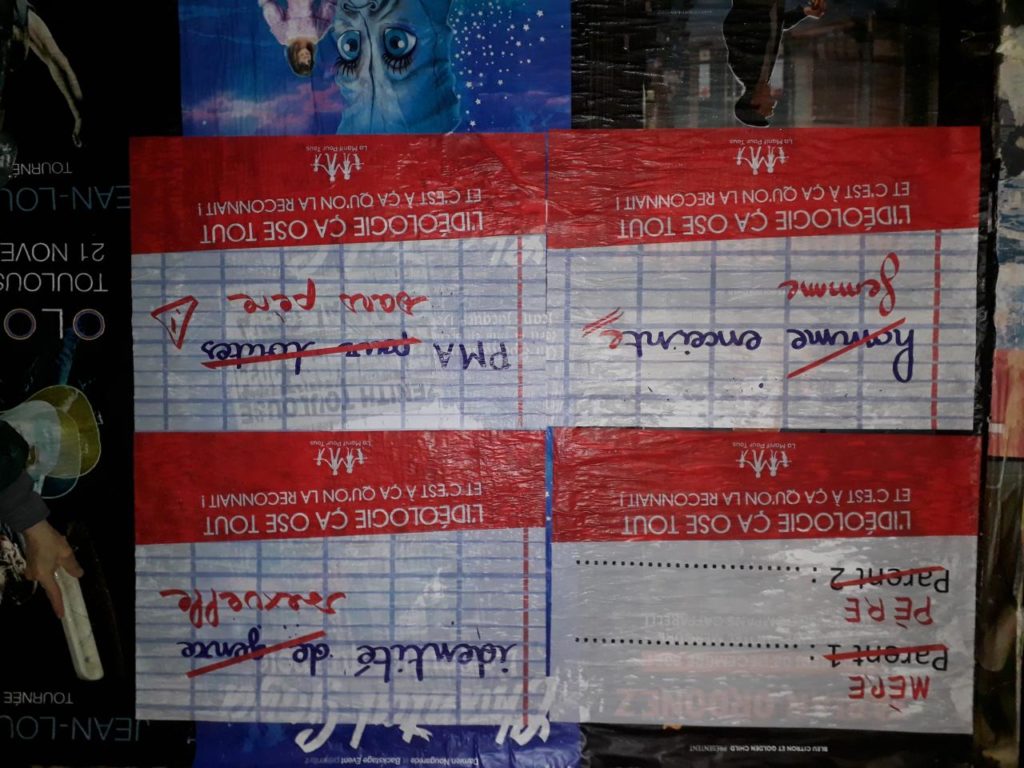 BLEU CITRON ET GOLDEN CHILD PRÉSENTENT
MÈRE
Parent 1 :
PÈRE
Parent 2 :
L'IDÉOLOGIE ÇA OSE TOUT
ET C'EST À ÇA QU'ON LA RECONNAIT !
La Manif Pour Tous
Damien Nougarède et Backstage Event présentent
identité de genre
sexuelle
L'IDÉOLOGIE ÇA OSE TOUT
ET C'EST À ÇA QU'ON LA RECONNAIT !
La Manif Pour Tous
homme enceinte
femme
L'IDÉOLOGIE ÇA OSE TOUT
ET C'EST À ÇA QU'ON LA RECONNAIT !
La Manif Pour Tous
PMA pour toutes
sans père
L'IDÉOLOGIE ÇA OSE TOUT
ET C'EST À ÇA QU'ON LA RECONNAIT !
La Manif Pour Tous
JEAN-LOU
TOURNÉE
LO
TOULOUS
21 NOVE
JEAN-LOU
TOURNÉE